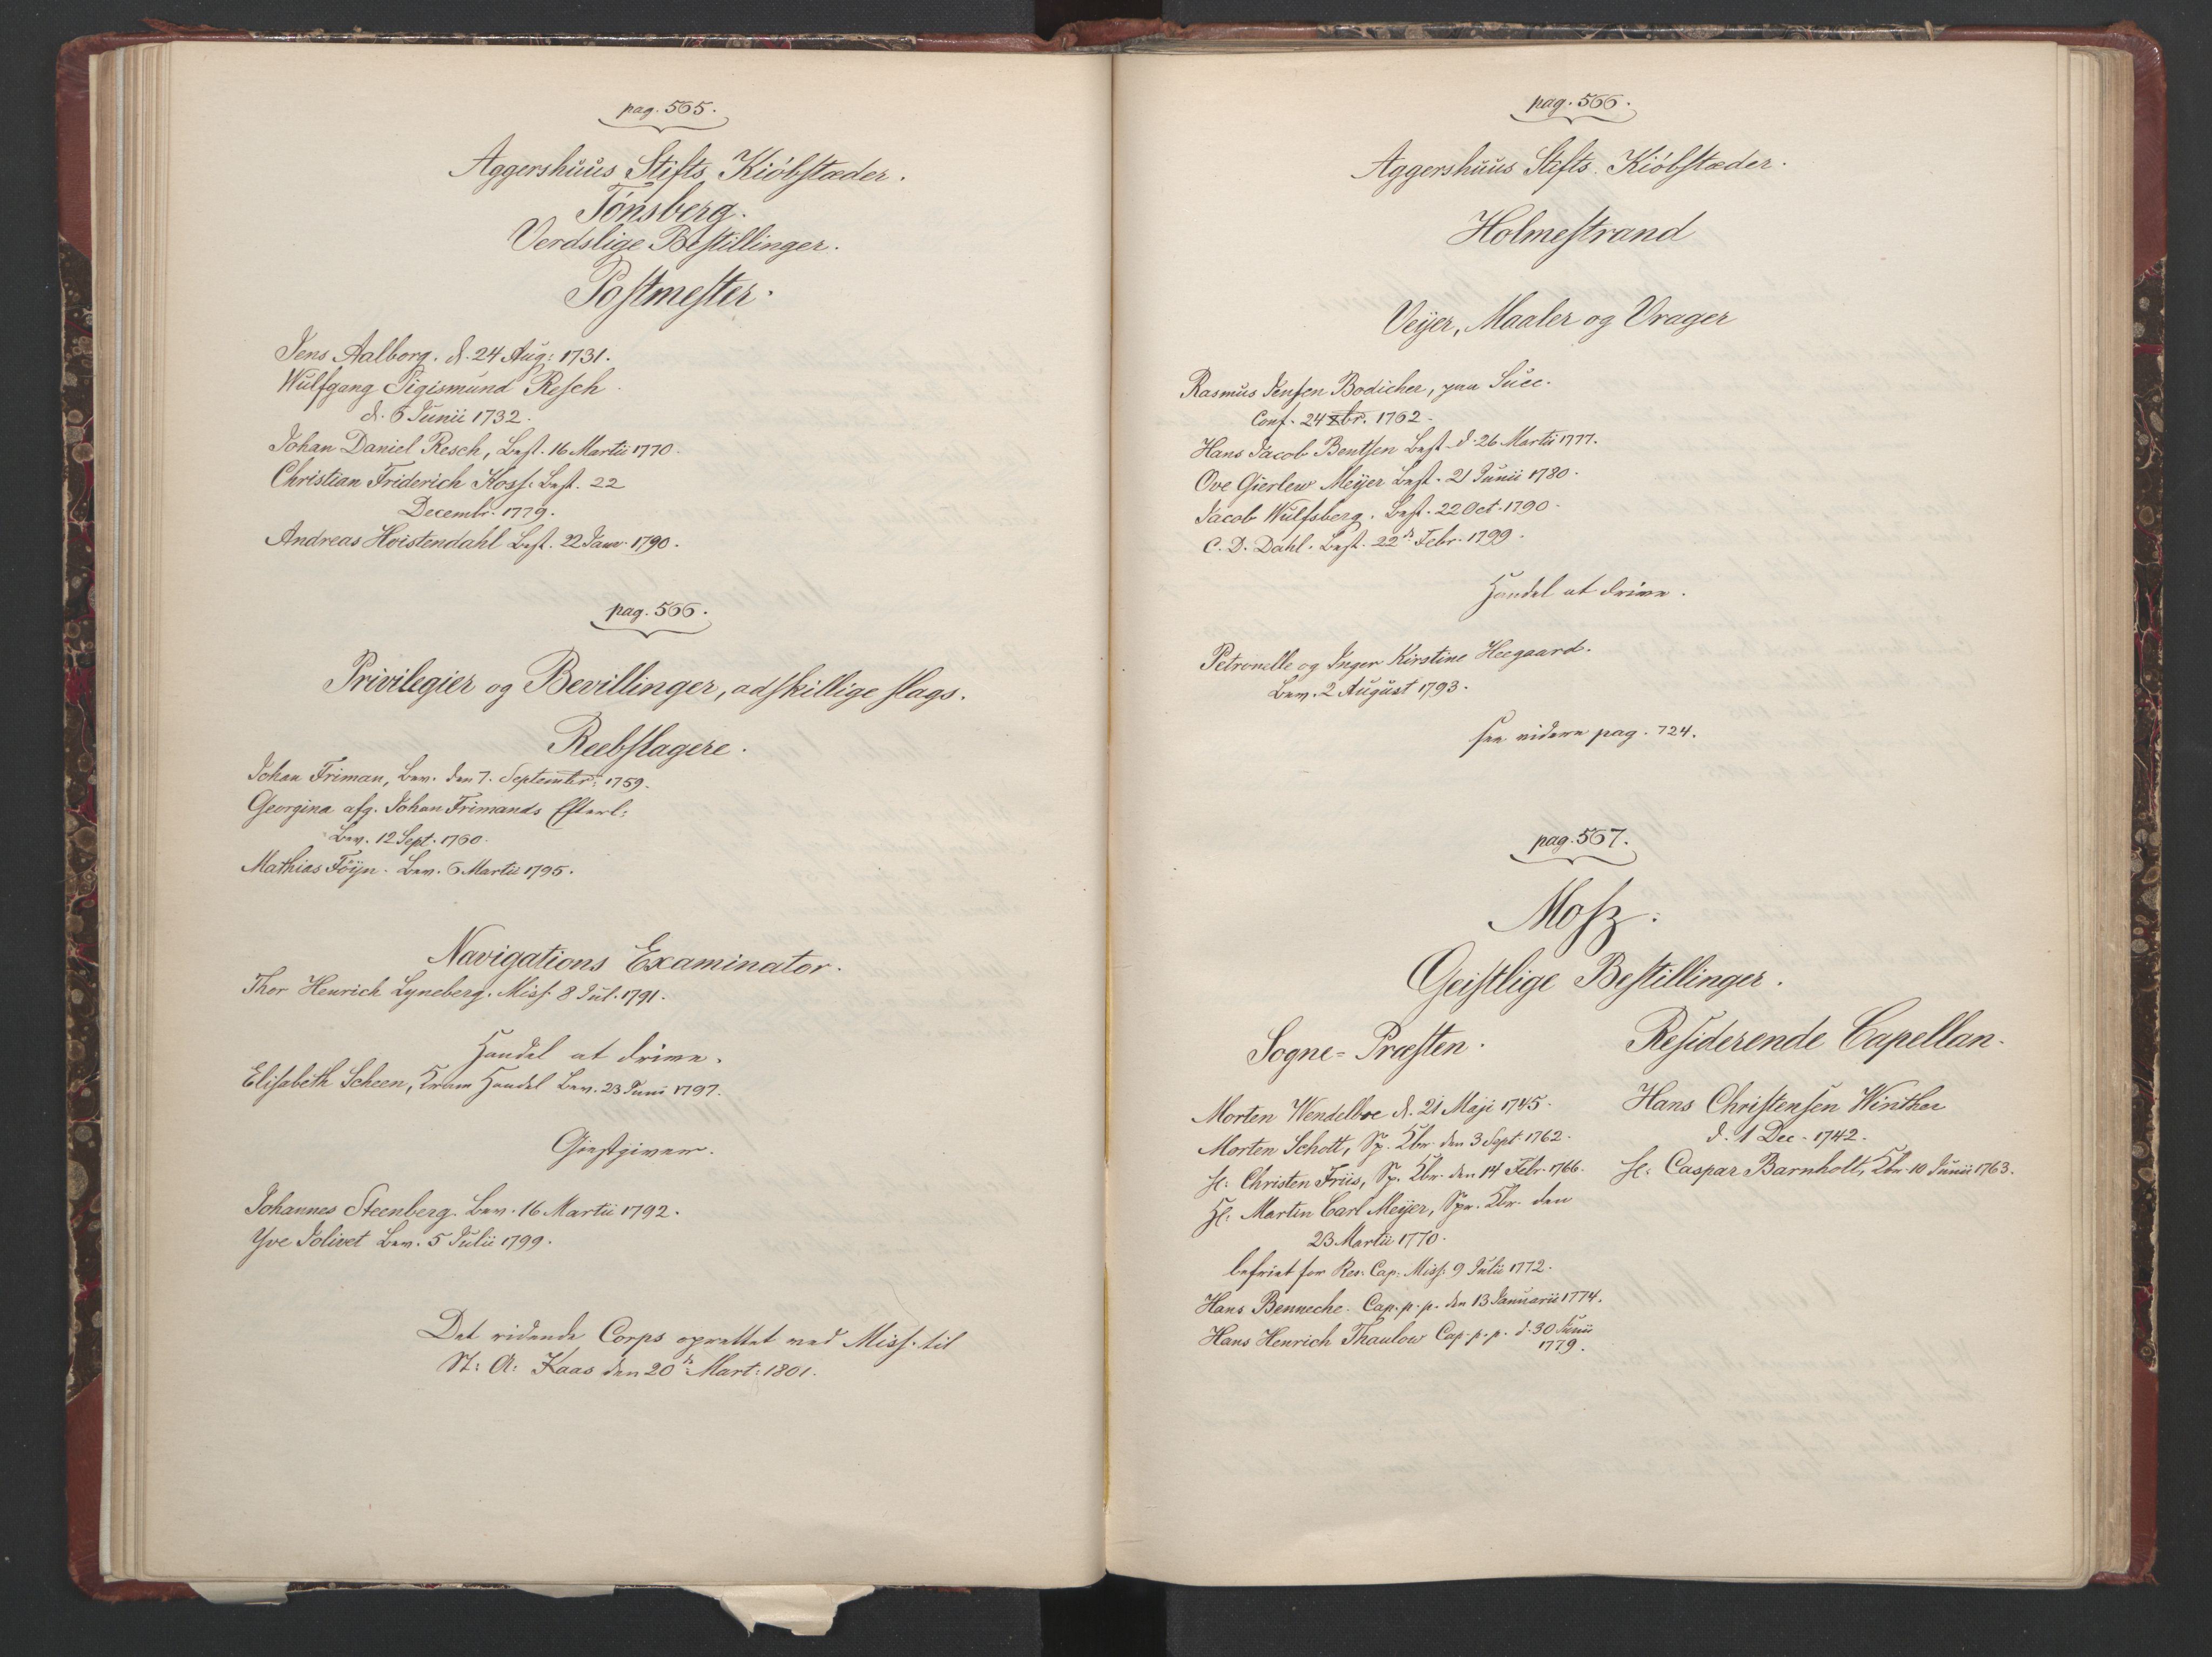 pag. 565.
Aggershuus Stifts Kiöbstæder.
Tönsberg.
Verdslige Bestillinger.
Postmester.
Jens Aalborg. d. 24 Aug: 1731.
Wulfgang Sigismund Resch
d. 6 Junii 1732.
Johan Daniel Resch, Best. 16 Martii 1770.
Christian Friderich Hoss. Best. 22
Decembr. 1779.
Andreas Hvistendahl Best. 22 Janr. 1790.
pag. 566.
Privilegier og Bevillinger, adskillige slags.
Reebslagere.
Johan Friman, Bev. den 7. September: 1759.
Georgina afg. Johan Frimands Efterl:
Bev. 12 Sept. 1760.
Mathias Föyn. Bev. 6 Martii 1795.
Navigations Examinator.
Thor Henrich Lyneberg. Miss. 8 Jul. 1791.
Handel at drive.
Elisabeth Scheen, Kram Handel Bev. 23 Juni 1797.
Giestgiver.
Johannes Steenberg. Bev. 16 Martii 1792.
Yve Jolivet Bev. 5 Julii 1799.
Det ridende Corps oprettet ved Miss. til
St: A: Kaas den 20de Mart: 1801.
pag. 566.
Aggershuus Stifts Kiöbstæder.
Holmestrand
Veyer, Maaler og Vrager
Rasmus Jensen Bödicher, paa Succ.
Conf. 24 Xbr. 1762.
Hans Jacob Bentsen Best. d. 26 Martii 1777.
Ove Gierlew Meyer Best. 21 Junii 1780.
Jacob Wulfsberg. Best. 22 Oct. 1790.
C. D. Dahl. Best. 22de Febr. 1799.
Handel at drive.
Petronelle og Inger Kirstine Heegaard.
Bev. 2 August 1793.
see videre pag. 724.
pag. 567.
Mosz.
Geistlige Bestillinger.
Sogne-Præsten.
Morten Wendelboe d. 21 Maji 1745.
Morten Schott, Sp. Kbr. den 3 Sept. 1762.
H: Christen Friis, Sp. Kbr. den 14 Febr. 1766.
H: Martin Carl Meyer, Spr. Kbr. den
23 Martii 1770.
befriet for Res: Cap: Miss: 9 Julii 1772.
Hans Benneche. Cap. p. p. den 13 Januarii 1774.
Hans Henrich Thaulow Cap. p. p. d. 30 Junii
1779.
Residerende Capellan.
Hans Christensen Winther
d. 1 Dec. 1742.
H: Caspar Barnholt, Kbr. 10 Junii 1763.